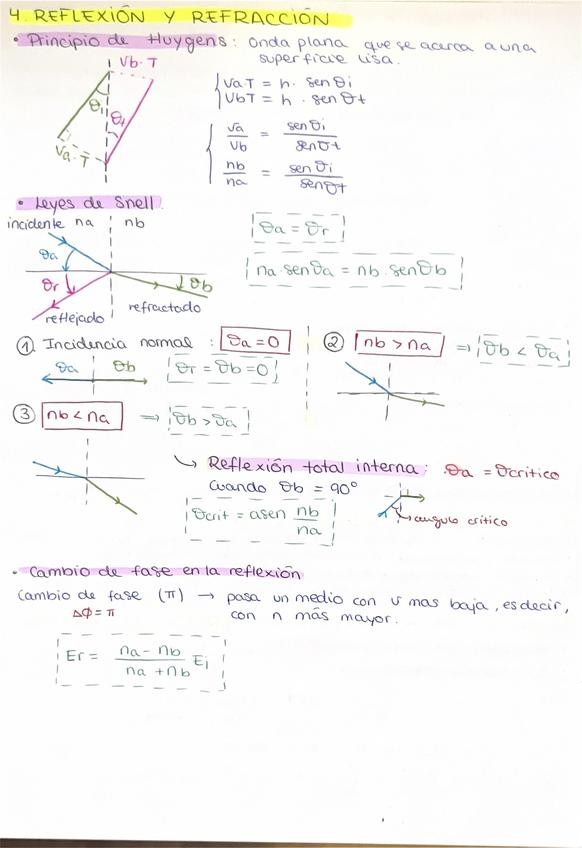 4. REFLEXIÓN Y REFRACCIÓN
• Principio de Huygens: Onda plana que se acerca a una
superficie lisa.
Vb·T
θi
θt
Va·T
VaT = h · senθi
VbT = h · senθt
va/vb = senθi/senθt
nb/na = senθi/senθt
• Leyes de Snell.
incidente na nb
θa
θr
θb
reflejado
refractado
θa = θr
na senθa = nb · senθb
① Incidencia normal : θa = 0
θa θb
θr = θb = 0
② nb > na ⇒ θb < θa
③ nb < na ⇒ θb > θa
↳ Reflexión total interna: θa = θcritico
cuando θb = 90°
θcrit = asen nb/na
↳ angulo critico
• Cambio de fase en la reflexión
Cambio de fase (π) → pasa un medio con v mas baja, es decir,
Δϕ = π
con n más mayor.
Er = na - nb / na + nb Ei